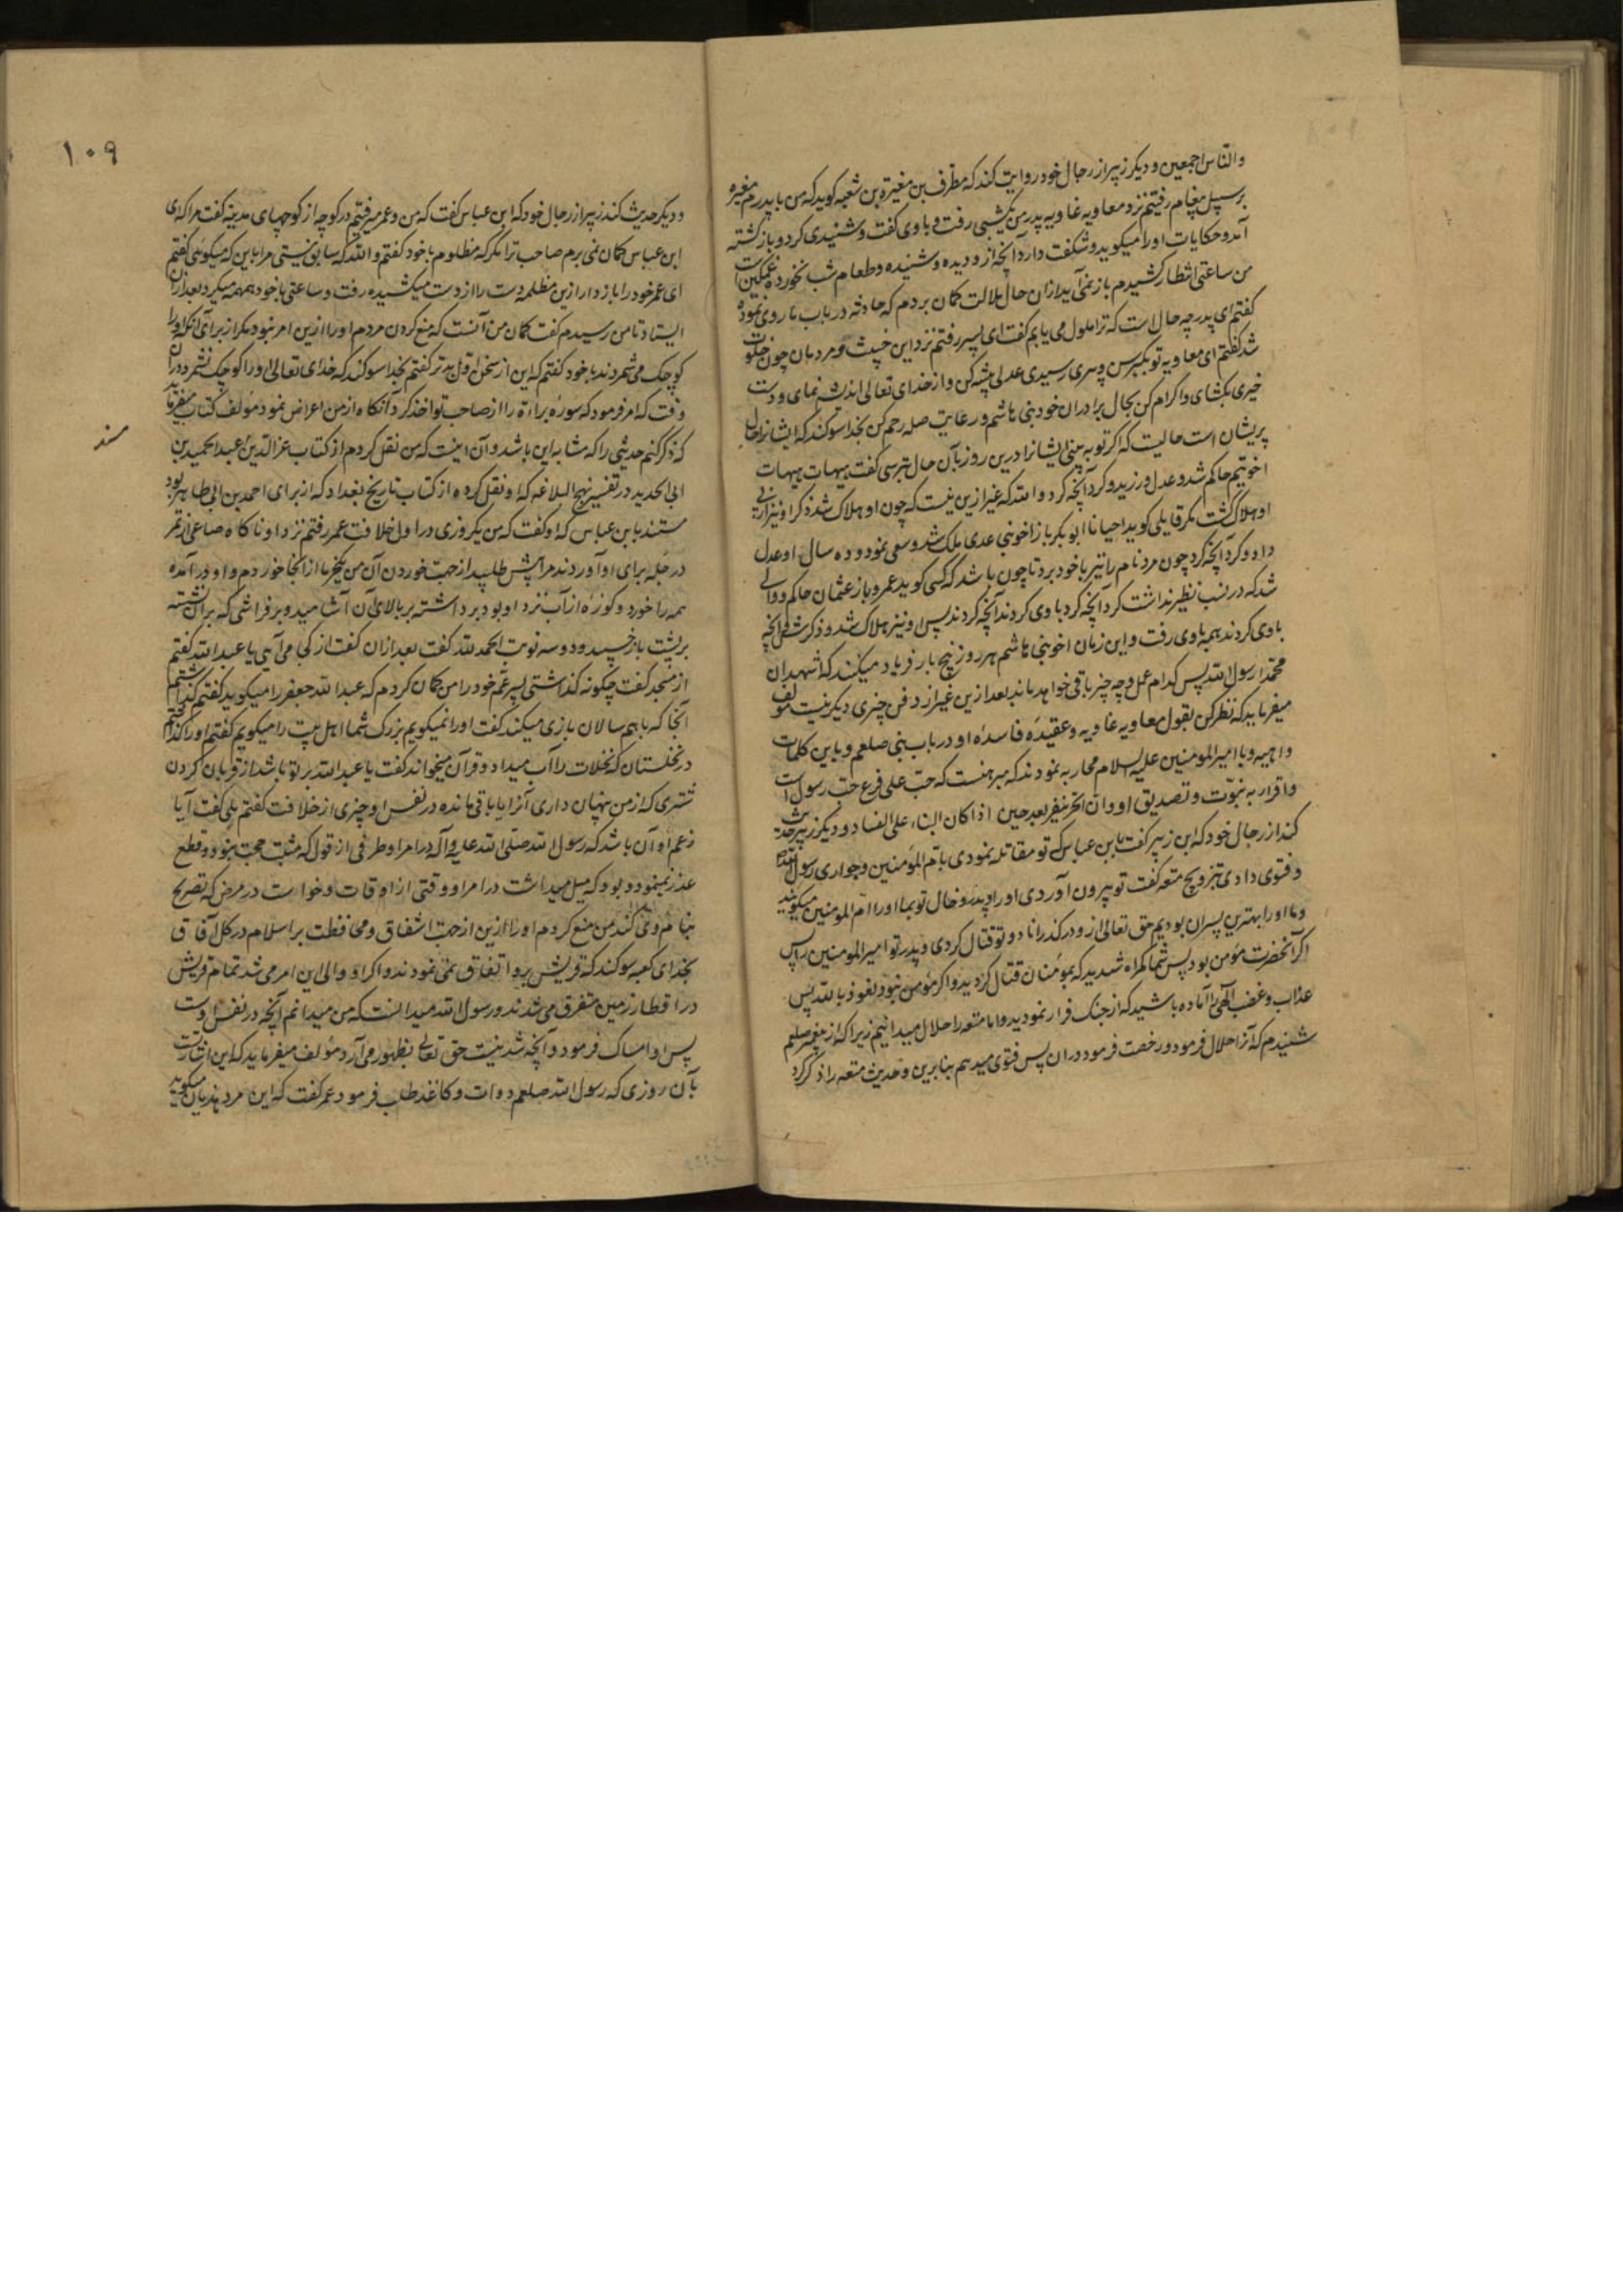 والناس اجمعین و دیکر زبیر از رجال خود روایت کند که مطرف بن مغیرة بن شعبه کوید که من با پدرم مغیره
برسبیل پیغام رفتیم نزد معاویه غاویه پدر من یکشبی رفت و با وی کفت و شنیدی کرد و باز کشته
آمد و حکایات او را میکوید و شکفت دارد آنچه از و دیده و شنیده و طعام شب نخورد و غمکین است
من ساعتی انتظار کشیدم باز نمی‌آید ازان حال ملالت کمان بردم که حادثه در باب ما روی نموده
کفتم ای پدر چه حال است که ترا ملول می یابم کفت ای پسر رفتم نزد این خبیث و مردمان چون خلوت
شد کفتم ای معاویه تو بکبر سن و سری رسیدی عدل پیشه کن و از خدای تعالی اندیشه نمای و دست
خیری بکشای و اکرام کن بحال برادران خود بنی هاشم و رعایت صله رحم کن بخدا سوکند که ایشانرا حال
پریشان است حالیت که اکر تو به بینی ایشانرا درین روز بآن حال بترسی کفت هیهات هیهات
اخوتیم حاکم شد و عدل ورزید و کرد آنچه کرد و الله که غیر ازین نیست که چون او هلاک شد ذکر او نیز
او هلاک کشت مکر قایلی کوید احیانا ابو بکر باز اخو بنی عدی ملک شد و سعی نمود و ده سال او عدل
داد و کرد آنچه کرد چون مرد نام را نیز با خود برد تا چون باشد که کسی کوید عمر و باز عثمان حاکم و والی
شد که در نسب نظیر نداشت کرد آنچه کرد با وی کردند آنچه کردند پس او نیز هلاک شد و ذکرش آنچه
با وی کردند همه با وی رفت و این زمان اخو بنی هاشم هر روز پنج بار فریاد میکنند که اشهد ان
محمدا رسول الله پس کدام عمل و چه چیز باقی خواهد ماند بعد ازین غیر از دفن چیزی دیکر نیست مؤلف
میفرماید که نظر کن بقول معاویه غاویه و عقیدهٔ فاسدهٔ او در باب نبی صلعم و باین کلمات
واهیه و با امیر المومنین علیه السلام محاربه نمودند که مبرهنست که حب علی فرع حب رسول است
و اقرار به نبوت و تصدیق او و ان الخر ینفر بعد حین اذا کان البناء علی الفساد و دیکر زبیر حدیث
کند از رجال خود که ابن زبیر کفت بابن عباس که تو مقاتله نمودی با ام المؤمنین و حواری رسول الله
و فتوی دادی بتزویج متعه کفت تو بیرون آوردی او را و پدر و خال تو بما او را ام المومنین میکویند
و ما او را بهترین پسران بودیم حق تعالی از و در کذراناد و تو قتال کردی و پدر تو امیر المومنین را پس
اکر آنحضرت مؤمن بود پس شما کمراه شدید که بمؤمنان قتال کردید و اکر مؤمن نبود نعوذ بالله پس
عذاب و غضب الهی را آماده باشید که از جنک فرار نمودید و اما متعه را حلال میدانیم زیرا که از پیغمبر صلعم
شنیدم که آنرا حلال فرمود و رخصت فرمود دران پس فتوی میدهم بنابرین و حدیث متعه را ذکر کرد
١٠٩
و دیکر حدیث کند زبیر از رجال خود که ابن عباس کفت که من و عمر میرفتیم در کوچه از کوچهای مدینه کفت مرا که ای
ابن عباس کمان نمی برم صاحب ترا مکر که مظلوم با خود کفتم و الله که سابق نیستی مرا باین که میکوئی کفتم
ای عمر خود را باز دار ازین مظلمه دست را از دست میکشیده رفت و ساعتی با خود همهمه میکرد بعد ازان
ایستاد تا من رسیدم کفت کمان من آنست که منع کردن مردم او را ازین امر نبود مکر از برای آنکه او را
کوچک می شمردند با خود کفتم که این از سخن اول بدتر کفتم بخدا سوکند که خدای تعالی او را کوچک نشمرد دران
وقت که امر فرمود که سوره براءة را از صاحب تو اخذ کرد آنکاه از من اعراض نمود مؤلف کتاب میفرماید
که ذکر کنم حدیثی را که مشابه این باشد و آن اینست که من نقل کردم از کتاب عز الدین عبد الحمید بن
سند
ابی الحدید در تفسیر نهج البلاغه که او نقل کرده از کتاب تاریخ بغداد که از برای احمد بن ابی طاهر بود
مستند بابن عباس که او کفت که من یکروزی در اول خلافت عمر رفتم نزد او ناکاه صاعی از تمر
در خله برای او آوردند مرا پیش طلبید از جهت خوردن آن من یکخرما از انجا خوردم و او در آمده
همه را خورد و کوزه از آب نزد او بود برداشته بر بالای آن آشامید و بر فراشی که بران نشسته
بر پشت باز خسپید و دو سه نوبت الحمد لله کفت بعد ازان کفت از کجا می آئی یا عبد الله کفتم
از مسجد کفت چکونه کذاشتی پسر عم خود را من کمان کردم که عبد الله جعفر را میکوید کفتم کذاشتم
آنجا که با هم سالان بازی میکند کفت او را نمیکویم بزرک شما اهل بیت را میکویم کفتم او را کذاشتم
در نخلستان که نخلات را آب میداد و قرآن میخواند کفت یا عبد الله بر تو باشد از قربان کردن
شتری که از من پنهان داری آنرا یا باقی مانده در نفس او چیزی از خلافت کفتم بلی کفت آیا
زعم او آن باشد که رسول الله صلی الله علیه و آله در امر او طرفی از قول که مثبت حجت نبود و قطع
عذر نمینمود و بود که میل میداشت در امر او وقتی از اوقات و خواست در مرض که تصریح
بنام وی کند من منع کردم او را ازین از جهت اشفاق و محافظت بر اسلام در کل آفاق
بخدای کعبه سوکند که قریش برو اتفاق نمی نمودند و اکر او والی این امر می شد تمام قریش
در اقطار زمین متفرق می شدند و رسول الله میدانست که من میدانم آنچه در نفس اوست
پس او امساک فرمود و آنچه شدنیست حق تعالی بظهور می آرد مؤلف میفرماید که این اشارتست
بآن روزی که رسول الله صلعم دوات و کاغذ طلب فرمود عمر کفت که این مرد هذیان میکوید